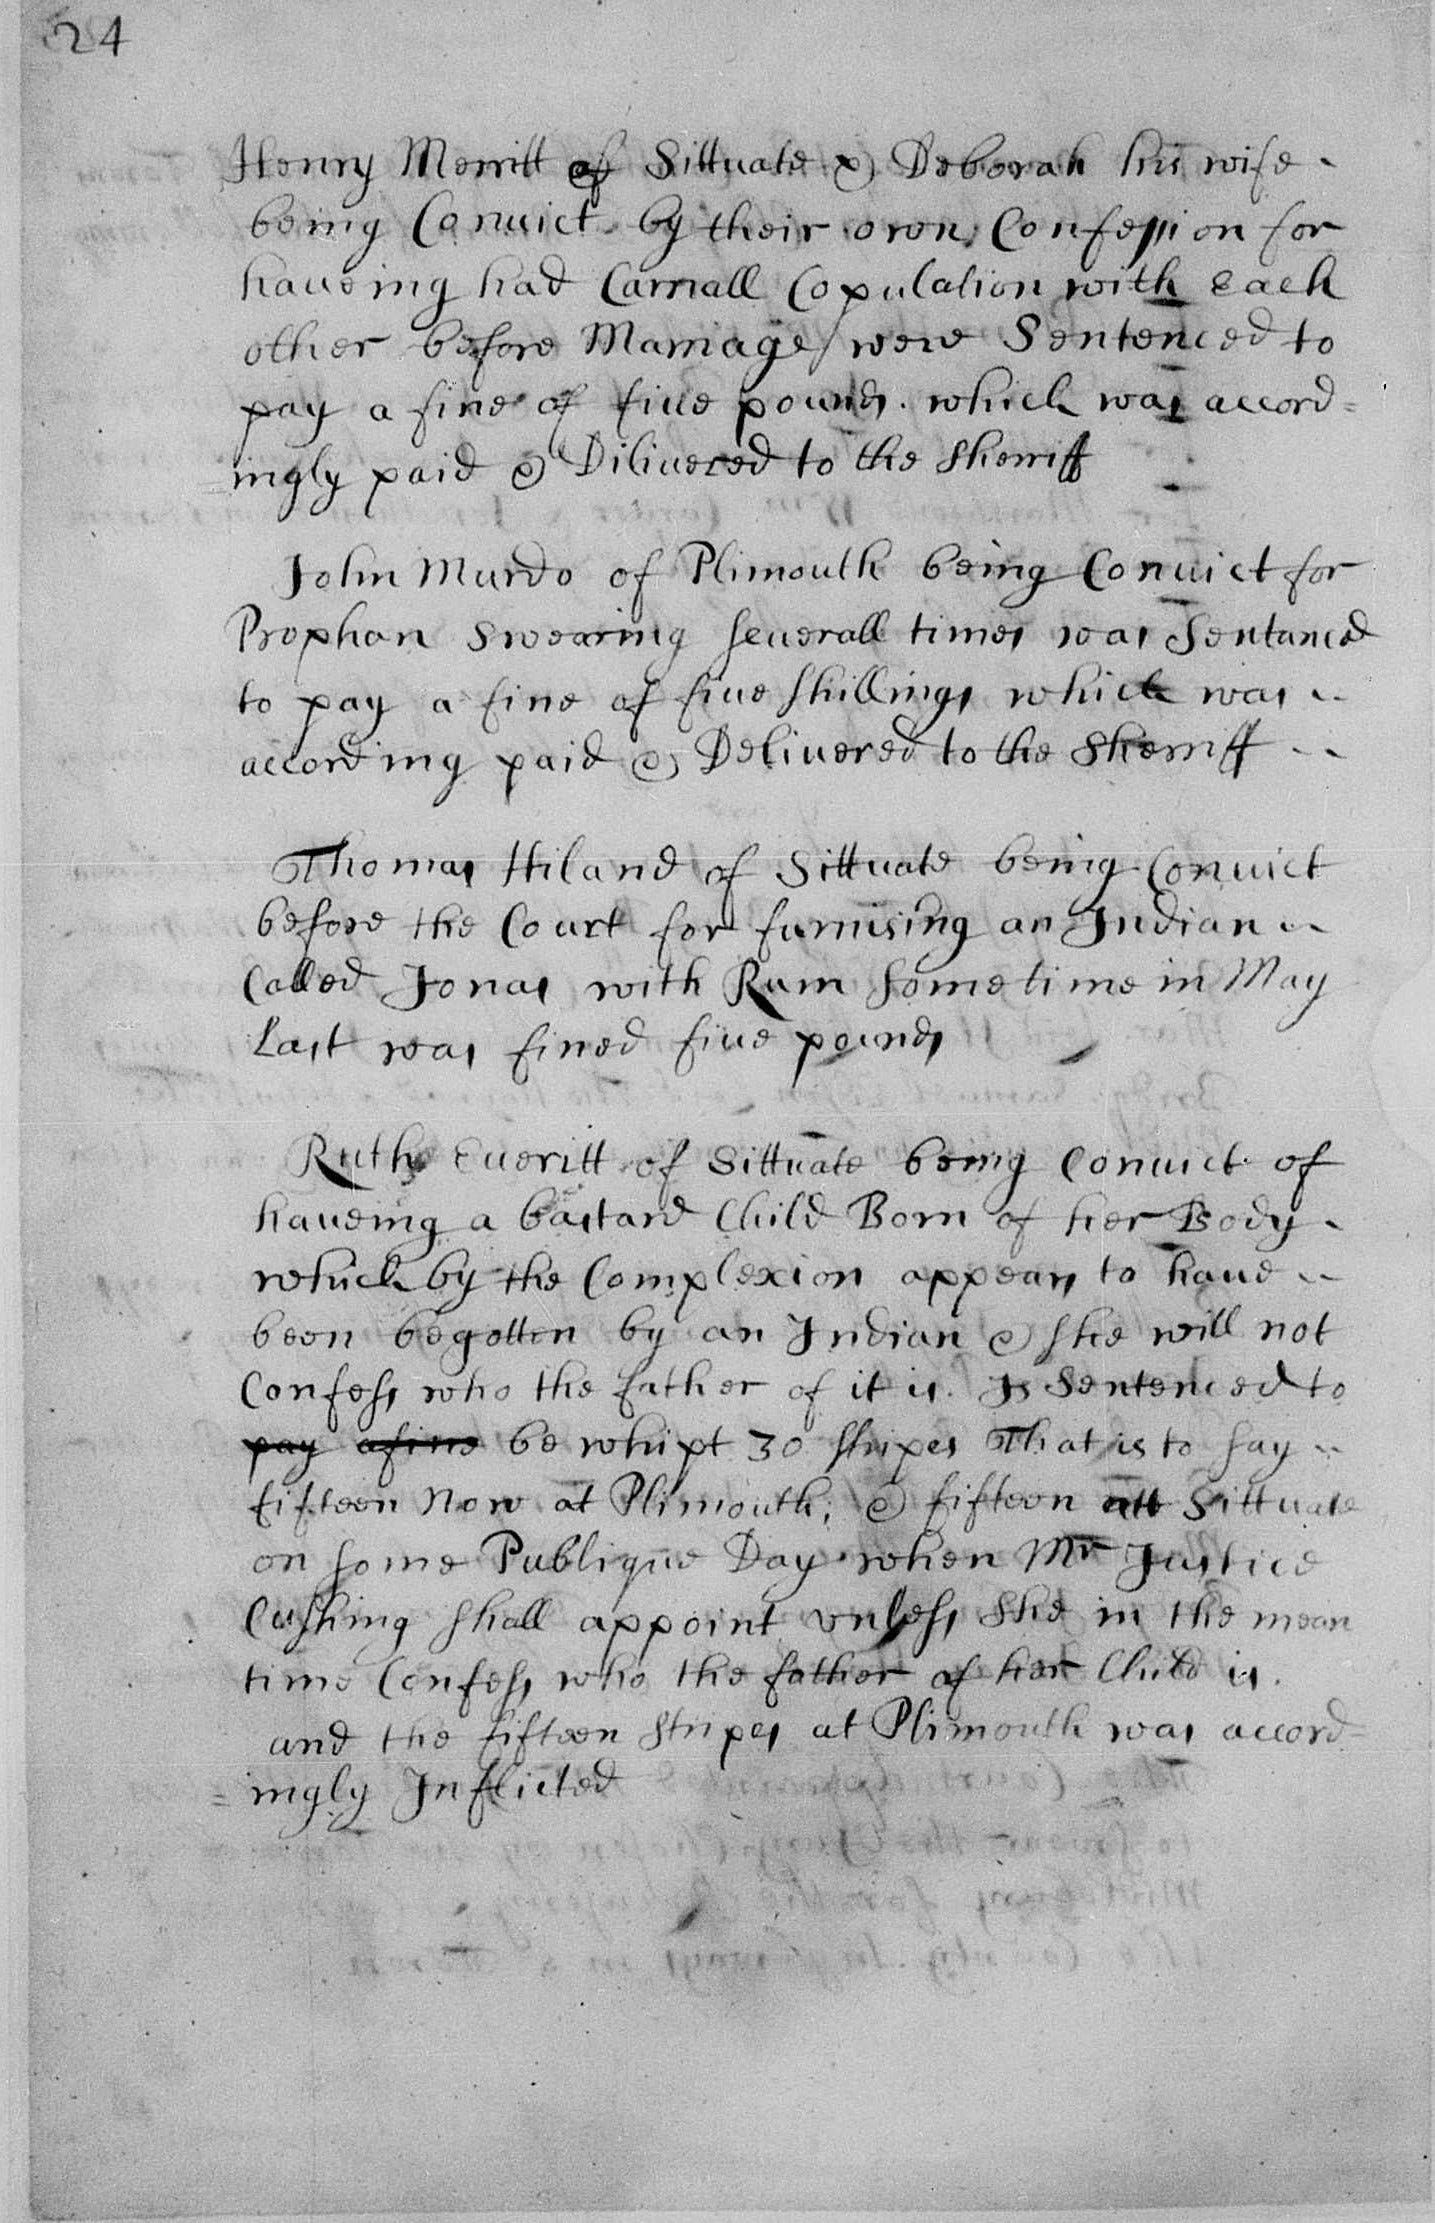 24
Henry Merritt of Sittuate & Deborah his wife
being Convict by their own Confession for
haueing had Carnall Copulation with Each
other before Marriage were Sentenced to
pay a fine of fiue pounds. which was accord=
=ingly paid & Diliuered to the Sherriff
John Murdo of Plimouth being Conuict for
Prophan Swearing Seuerall times was Sentanced
to pay a fine of fiue Shillings which was
according paid & Deliuered to the Sherriff
Thomas Hiland of Sittuate being Conuict
before the Court for furnising an Indian
Called Jonas with Rum Sometime in May
Last was fined fiue pounds
Ruth Eueritt of Sittuate being Conuict of
haueing a bastard Child Born of her Body
which by the Complexion appears to haue
been begotten by an Indian & She will not
Confess who the father of it is. Is Sentenced to
pay a fine be whipt 30 Stripes That is to Say
fifteen Now at Plimouth; & fifteen att Sittuate
on Some Publique Day when Mr Justice
Cushing Shall appoint vnless She in the mean
time Confess who the father of her Child is.
and the fifteen Stripes at Plimouth was accord=
=ingly Inflicted